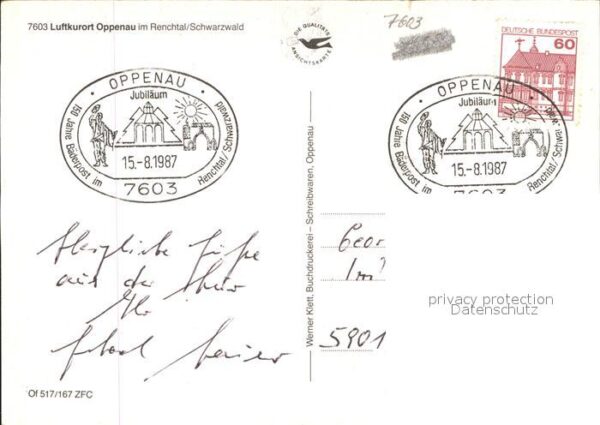 7603 Luftkurort Oppenau im Renchtal/Schwarzwald
DIE QUALITÄTS
ANSICHTSKARTE
7603
DEUTSCHE BUNDESPOST
60
OPPENAU
Jubiläum
150 Jahre Bäderpost im Renchtal/Schwarzwald
15.-8.1987
7603
OPPENAU
Jubiläum
150 Jahre Bäderpost im Renchtal/Schwarzwald
15.-8.1987
7603
Herzliche Grüße
aus der Kur
Ihr
Werner Klett, Buchdruckerei – Schreibwaren, Oppenau
Geor
Im
5901
privacy protection
Datenschutz
Of 517/167 ZFC